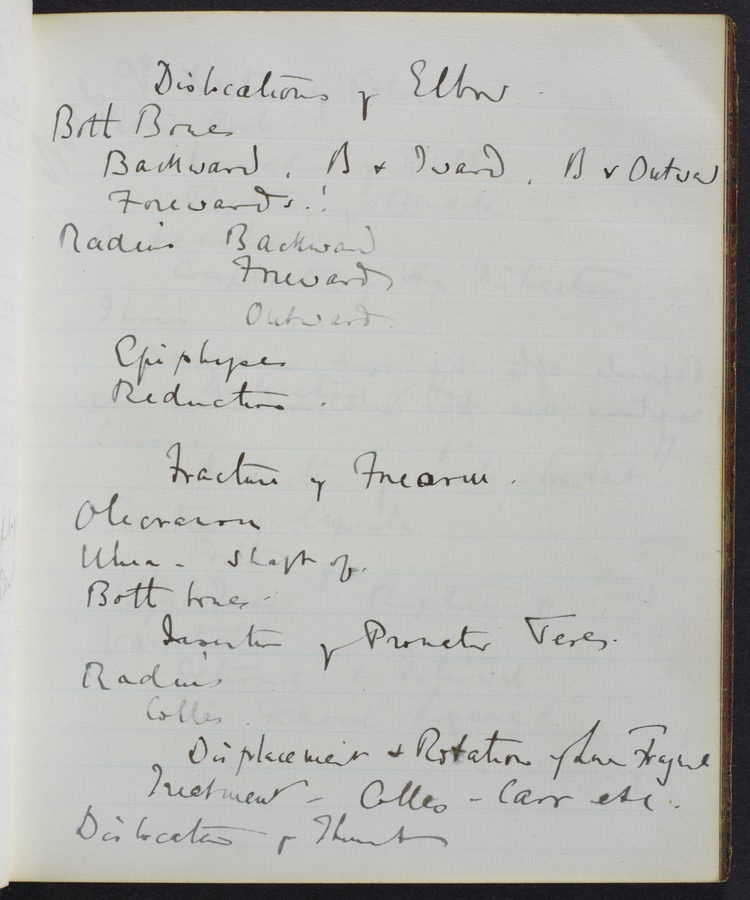 Dislocations of Elbow
Both Bones
Backward. B & Iward. B & Outwa
Forewards.!
Radius Backward
Forewards
Outwards
Epiphyses
Reduction.
Fracture of Forearm.
Olecranon
Ulna - Shaft of.
Both bones.
Insertion of Pronator Teres.
Radius
Colles.
Displacement & Rotation of Low Fragme
Treatment - Colles - Carr etc.
Dislocation of